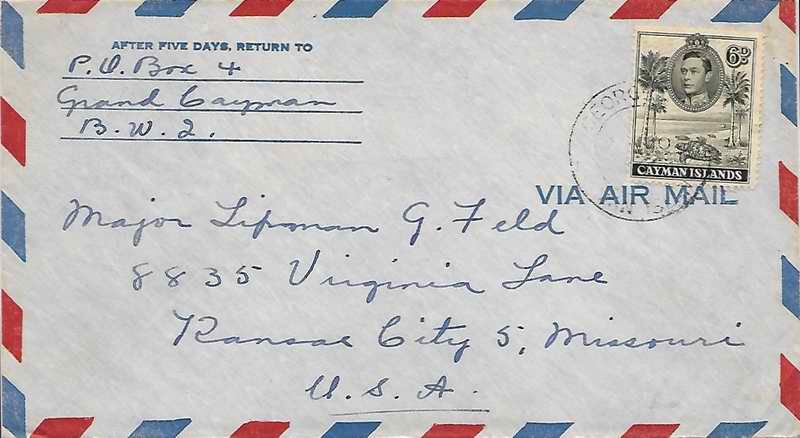 AFTER FIVE DAYS, RETURN TO
P.O. Box 4
Grand Cayman
B.W.I.
6D
CAYMAN ISLANDS
GEORG
VIA AIR MAIL
Major Lipman G. Feld
8835 Virginia Lane
Kansas City 5, Missouri
U.S.A.